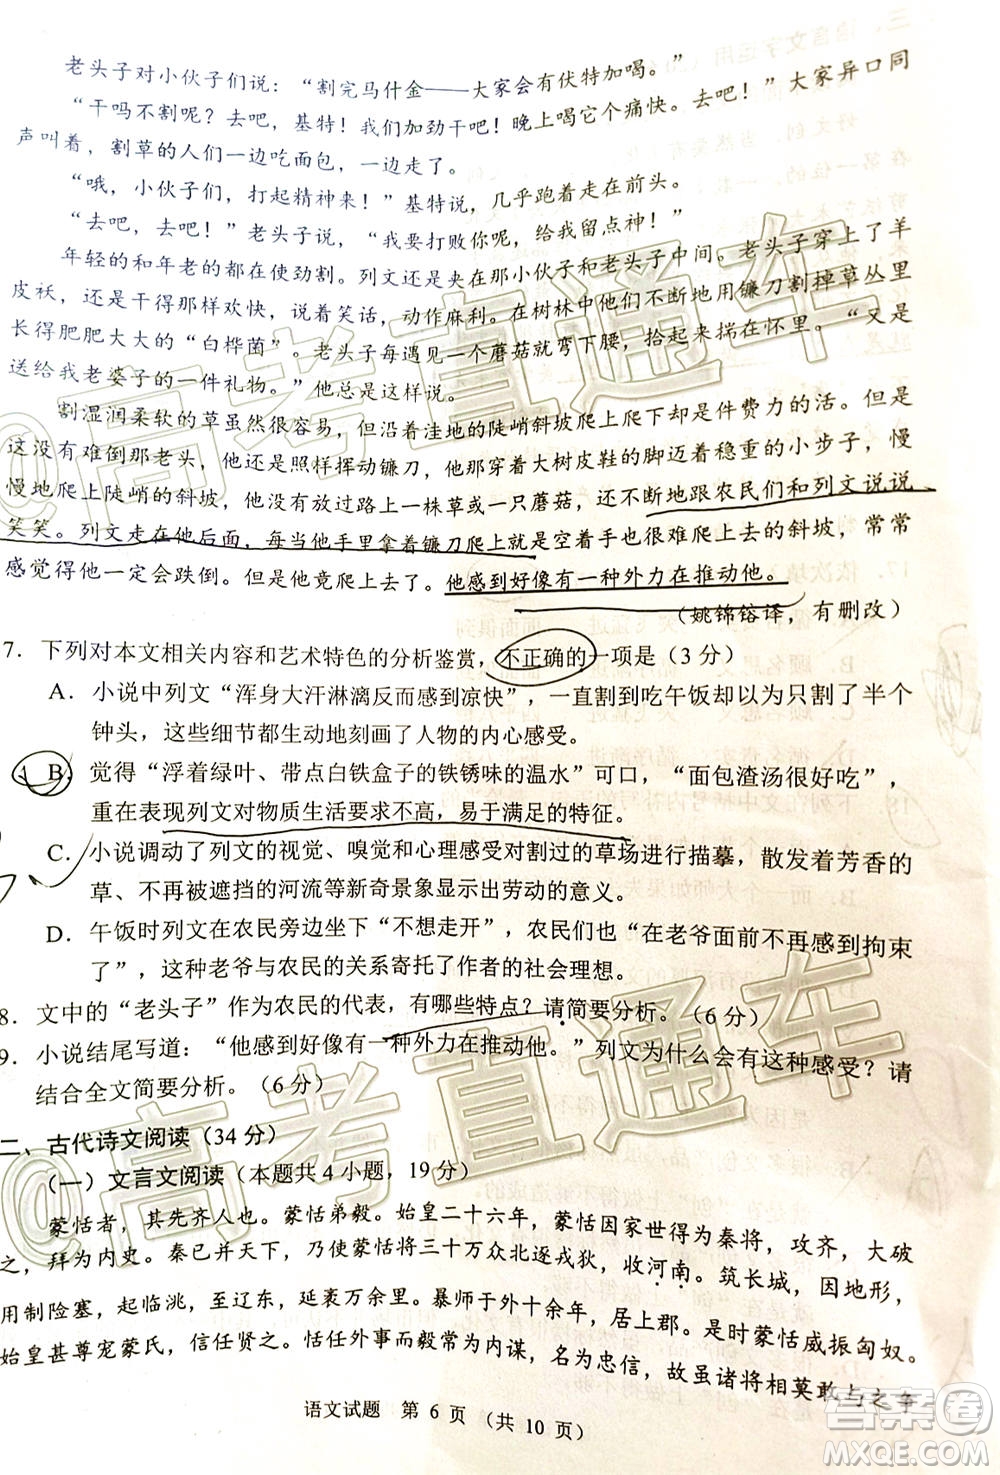 老头子对小伙子们说：“割完马什金——大家会有伏特加喝。”
“干吗不割呢？去吧，基特！我们加劲干吧！晚上喝它个痛快。去吧！”大家异口同
声叫着，割草的人们一边吃面包，一边走了。
“哦，小伙子们，打起精神来！”基特说，几乎跑着走在前头。
“去吧，去吧！”老头子说，“我要打败你呢，给我留点神！”
年轻的和年老的都在使劲割。列文是夹在那小伙子和老头子中间。老头子穿上了羊
皮袄，还是干得那样欢快，说着笑话，动作麻利。在树林中他们不断地用镰刀割掉草丛里
长得肥肥大大的“白桦菌”。老头子每遇见一个蘑菇就弯下腰，拾起来揣在怀里。“又是
送给我老婆子的一件礼物。”他总是这样说。
割湿润柔软的草虽然很容易，但顺着洼地的陡峭斜坡爬上爬下却是件费力的活。但是
这没有难倒那老头，他照样挥动镰刀，他那穿着大树皮鞋的脚迈着稳重的小步子，慢
慢地爬上陡峭的斜坡，他没有放过路上一株草或一个蘑菇，还不断地跟农民们和列文说说
笑笑。列文走在他后面，每当他手里拿着镰刀爬上就是空着手也很难爬上去的斜坡，常常
感觉得他一定会跌倒。但是他竟爬上去了。他感到好像有一种外力在推动他。
（姚锦镕译，有删改）
7．下列对本文相关内容和艺术特色的分析鉴赏，不正确的一项是（3 分）
A．小说中列文“浑身大汗淋漓反而感到凉快”，一直割到吃午饭却以为只割了半个
钟头，这些细节都生动地刻画了人物的内心感受。
B．觉得“浮着绿叶、带点白铁盒子的铁锈味的温水”可口，“面包渣汤很好吃”，
重在表现列文对物质生活要求不高，易于满足的特征。
C．小说调动了列文的视觉、嗅觉和心理感受对割过的草场进行描摹，散发着芳香的
草、不再被遮挡的河流等新奇景象显示出劳动的意义。
D．午饭时列文在农民旁边坐下来“不想走开”，农民们也“在老爷面前不再感到拘束
了”，这里老爷与农民的关系寄托了作者的社会理想。
8．文中的“老头子”作为农民的代表，有哪些特点？请简要分析。（6 分）
9．小说结尾写道：“他感到好像有一种外力在推动他。”列文为什么会有这种感受？请
结合全文简要分析。（6 分）
二、古代诗文阅读（34 分）
（一）文言文阅读（本题共 4 小题，19 分）
蒙恬者，其先齐人也。蒙恬弟毅。始皇二十六年，蒙恬因家世得为秦将，攻齐，大破
之，拜为内史。秦已并天下，乃使蒙恬将三十万众北逐戎狄，收河南。筑长城，因地形，
用制险塞，起临洮，至辽东，延袤万余里。暴师于外十余年，居上郡。是时蒙恬威振匈奴。
始皇甚尊宠蒙氏，信任贤之。恬任外事而毅常为内谋，名为忠信，故虽诸将相莫敢与之争
语文试题 第 6 页 （共 10 页）
@高考直通车
@高考直通车
答案圈
MXQE.COM